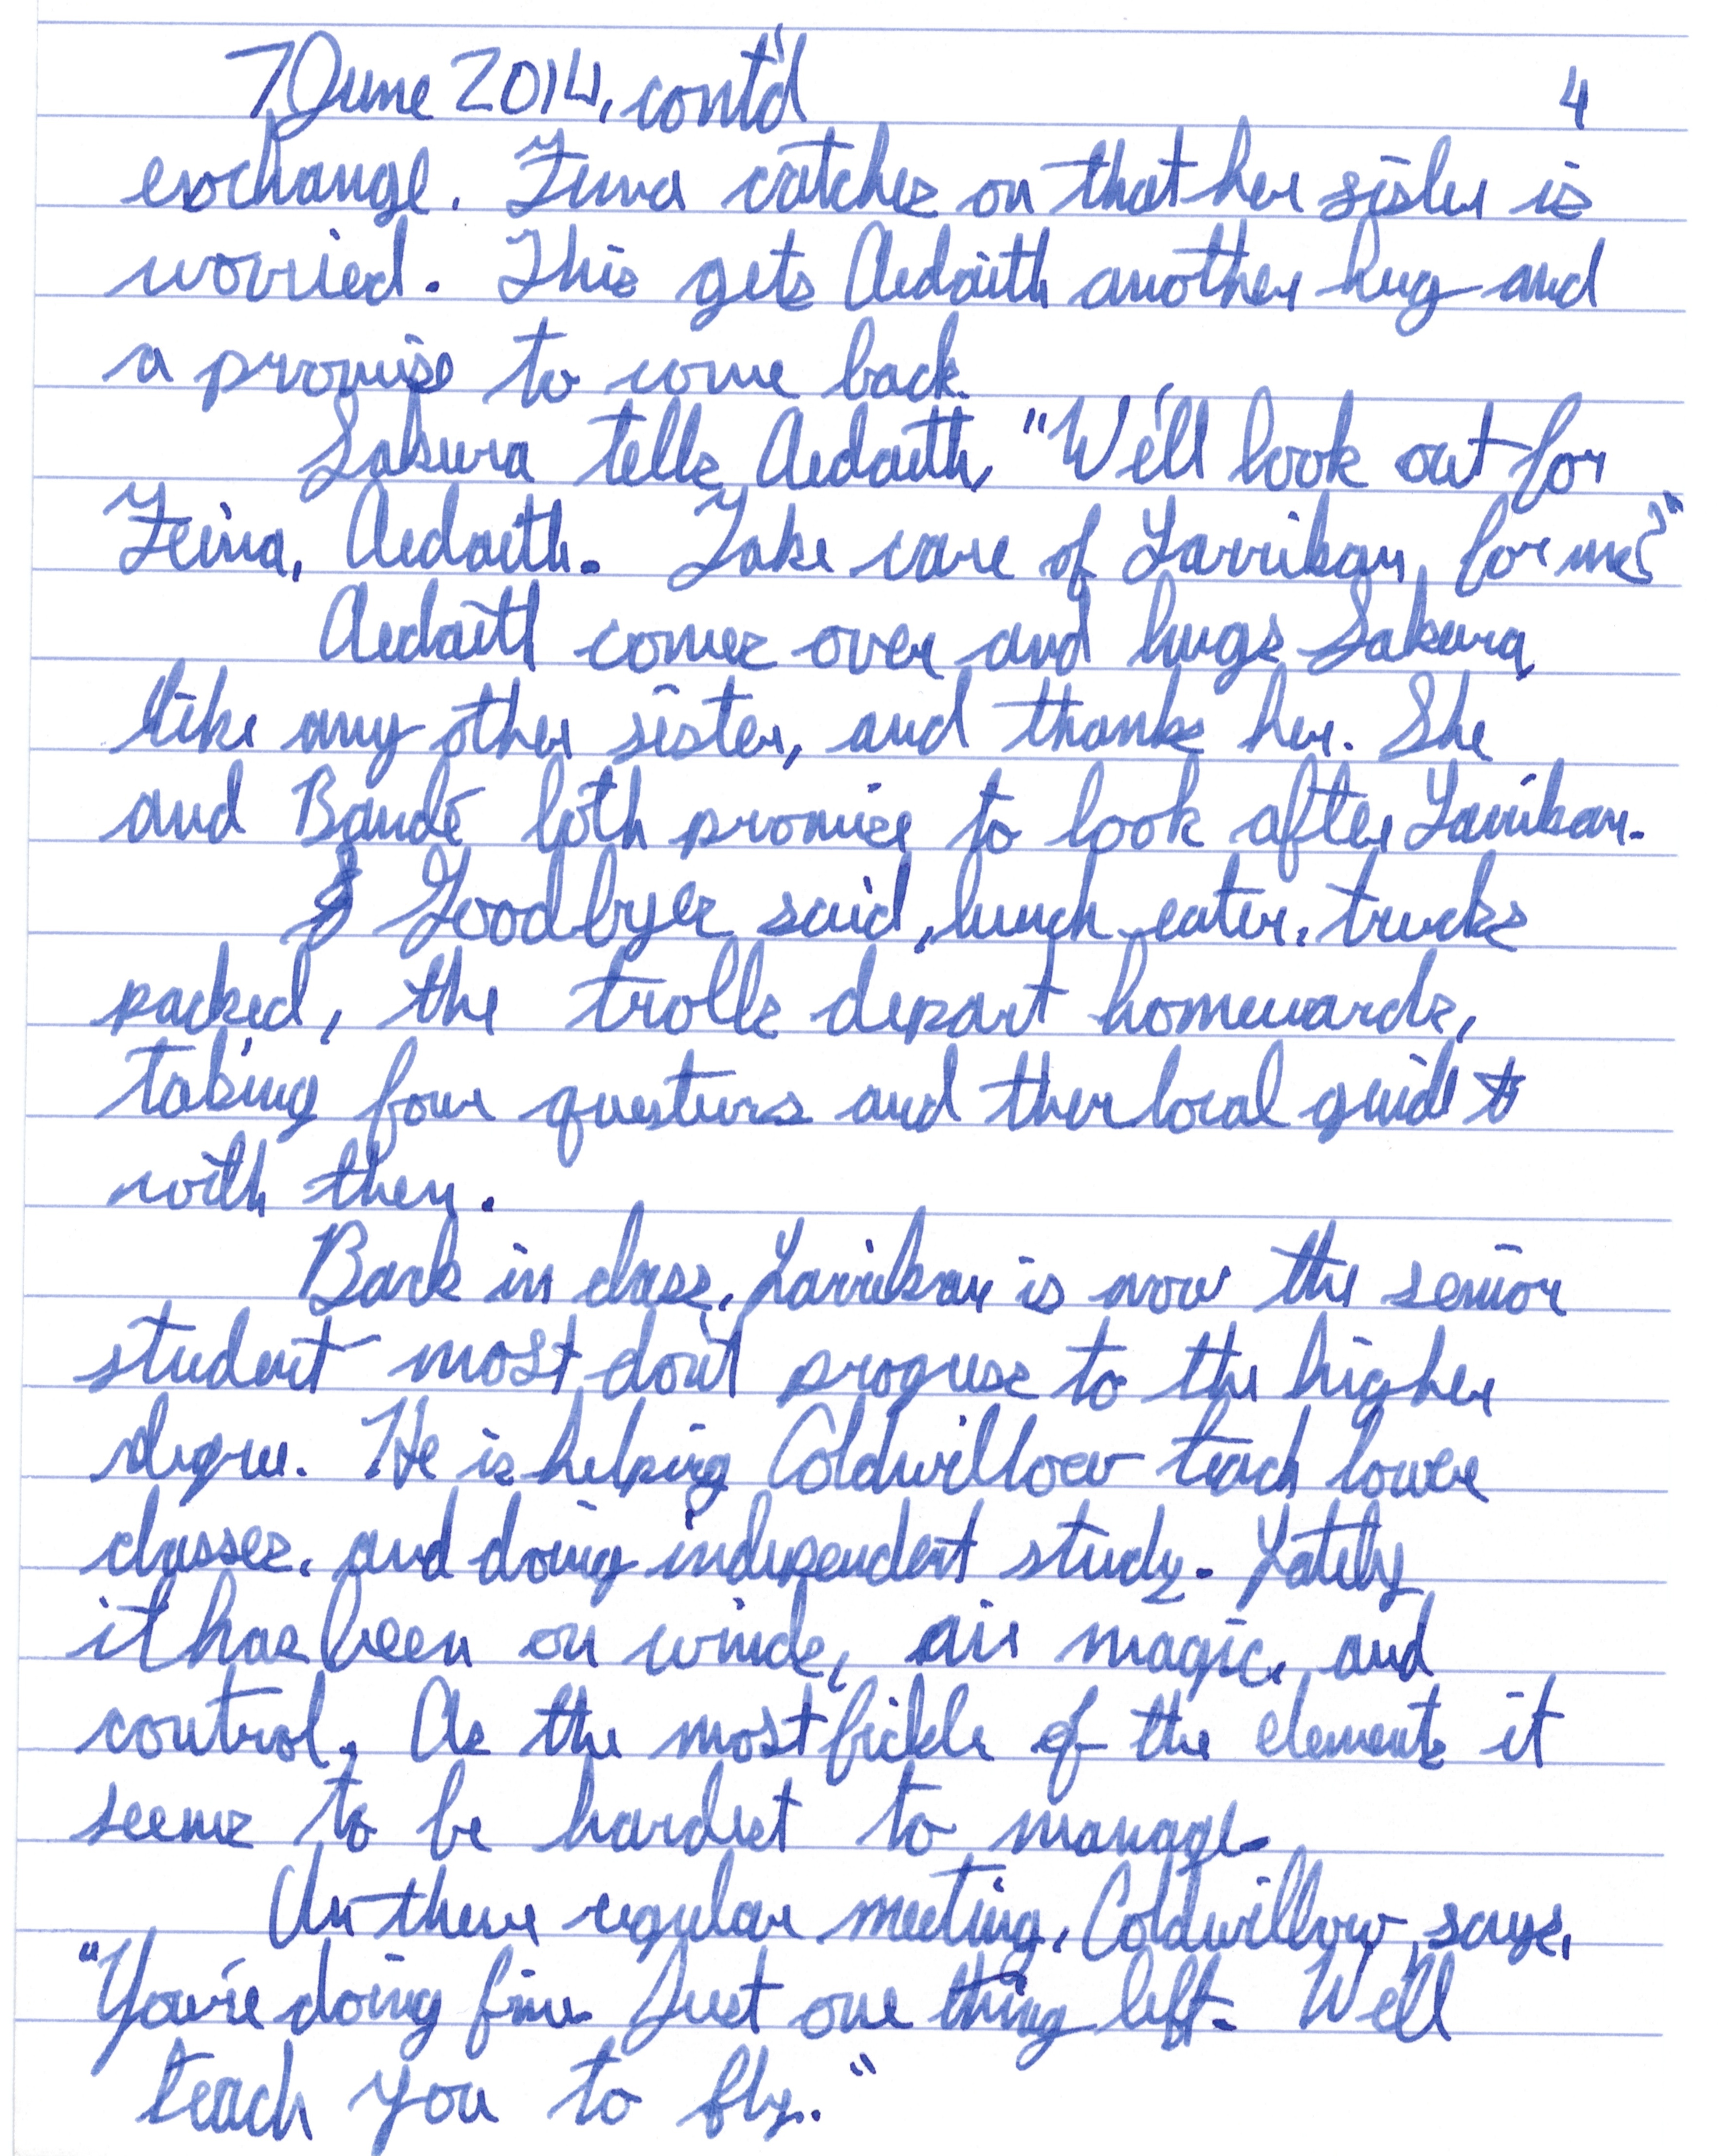 7 June 2014, cont'd 4
exchange. Zeina catches on that her sister is
worried. This gets Aedaith another hug and
a promise to come back.
Sakura tells Aedaith, "We'll look out for
Zeina, Aedaith. Take care of Larrikan, for me?"
Aedaith comes over and hugs Sakura,
like any other sister, and thanks her. She
and Baudé both promise to look after Larrikan.
Goodbyes said, lunch eaten, trucks
packed, the trolls depart homewards,
taking four questers and their local guide
with them.
Back in class, Larrikan is now the senior
student most don't progress to the higher
degree. He is helping Coldwillow teach lower
classes, and doing independent study. Lately
it has been on winds, air magic, and
control. As the most fickle of the elements it
seems to be hardest to manage.
In there regular meeting, Coldwillow, says,
"You're doing fine. Just one thing left. We'll
teach you to fly."